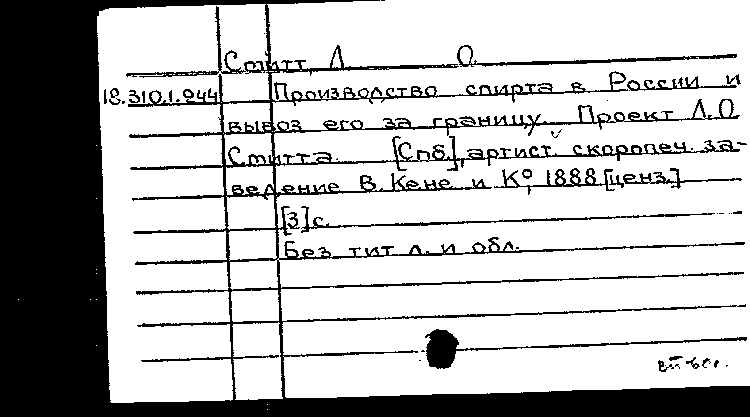 Смитт, Л. О.
18.310.1.944 Производство спирта в России и
вывоз его за границу. Проект Л.О.
Смитта. [Спб.], артист. скоропеч. за-
ведение В. Кене и К°, 1888 [ценз.]
[3] с.
Без тит. л. и обл.